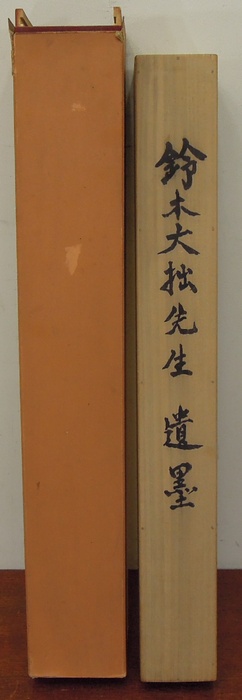 鈴木大拙先生 遺墨